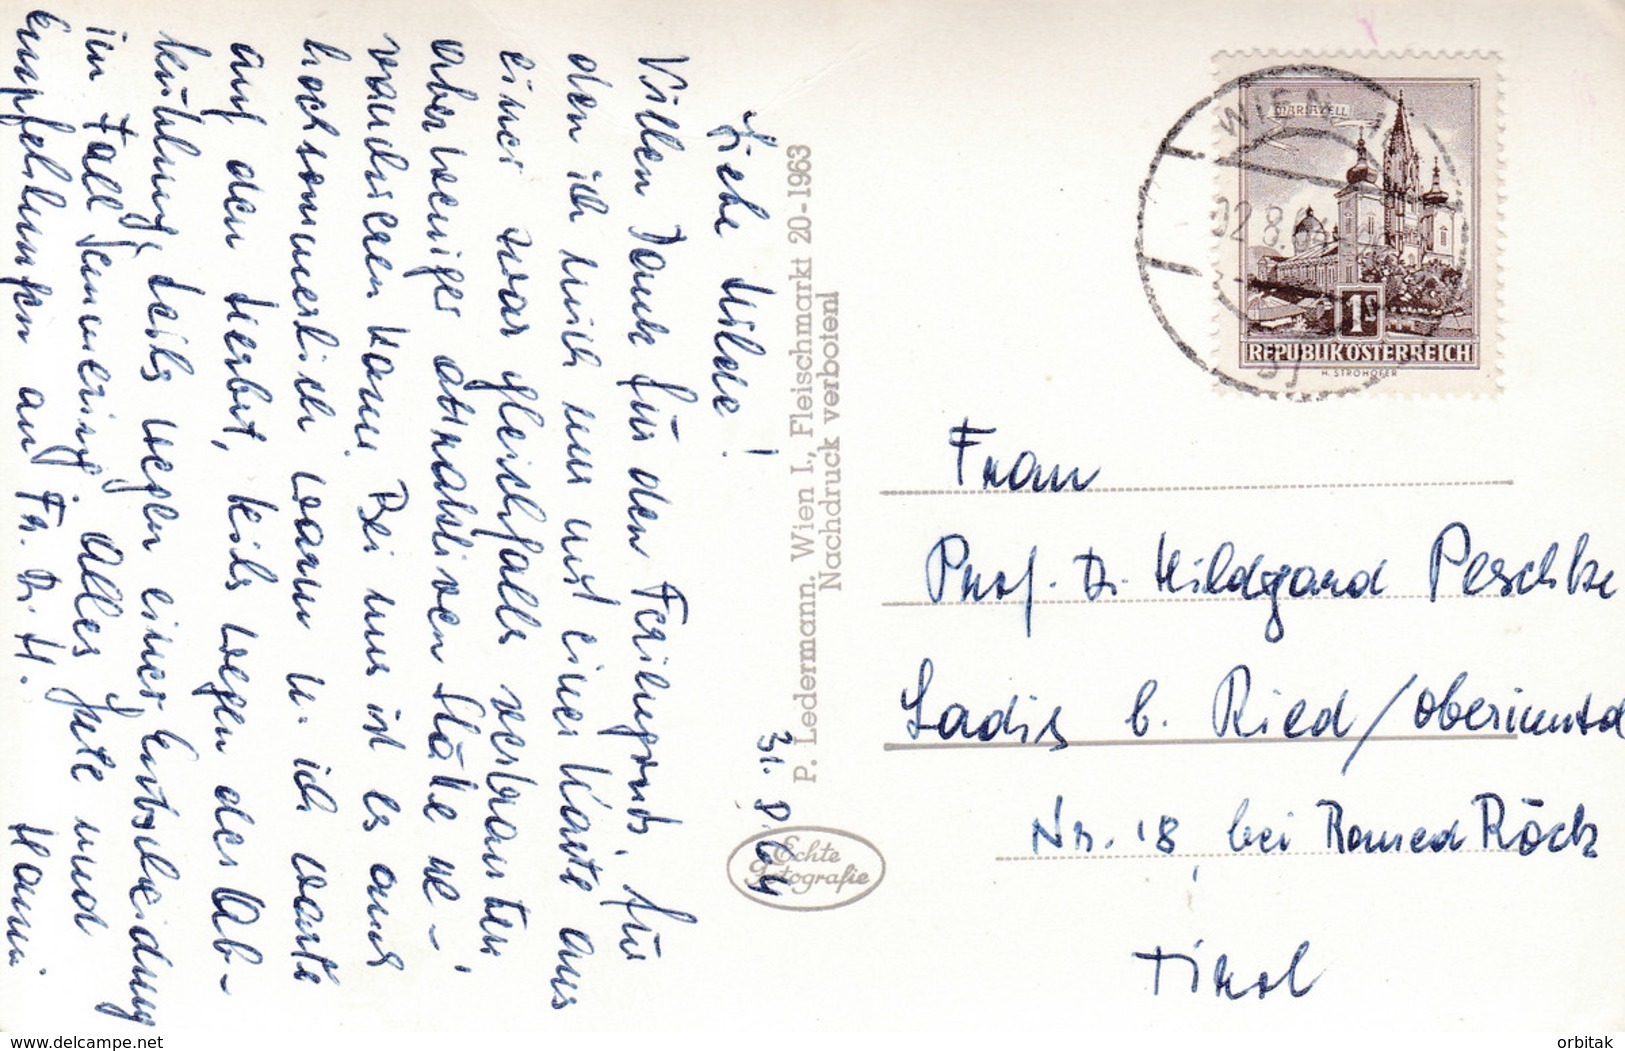 31. 8. 64
Liebe Hilde!
Vielen Dank für den Feriengruß, für
den ich mich nur mit einer Karte aus
einer zwar gleichfalls vertrauten
aber weniger attraktiven Stätte re-
vanchieren kann. Bei uns ist es auch
hochsommerlich warm u. ich warte
auf den Herbst, teils wegen der Ab-
kühlung, teils wegen einer Entscheidung
im Fall Semmering. Alles Gute und
Empfehlungen an Fr. Dr. H. Hanni
P. Ledermann. Wien I., Fleischmarkt 20-1963
Nachdruck verboten!
Echte
Fotografie
WIEN
MARIAZELL
1S
REPUBLIK ÖSTERREICH
H. STROHOFER
Frau
Prof. Dr. Hildgard Peschke
Ladis b. Ried/Oberinntal
Nr. 18 bei Romed Röck
Tirol
delcampe.net
orbitak